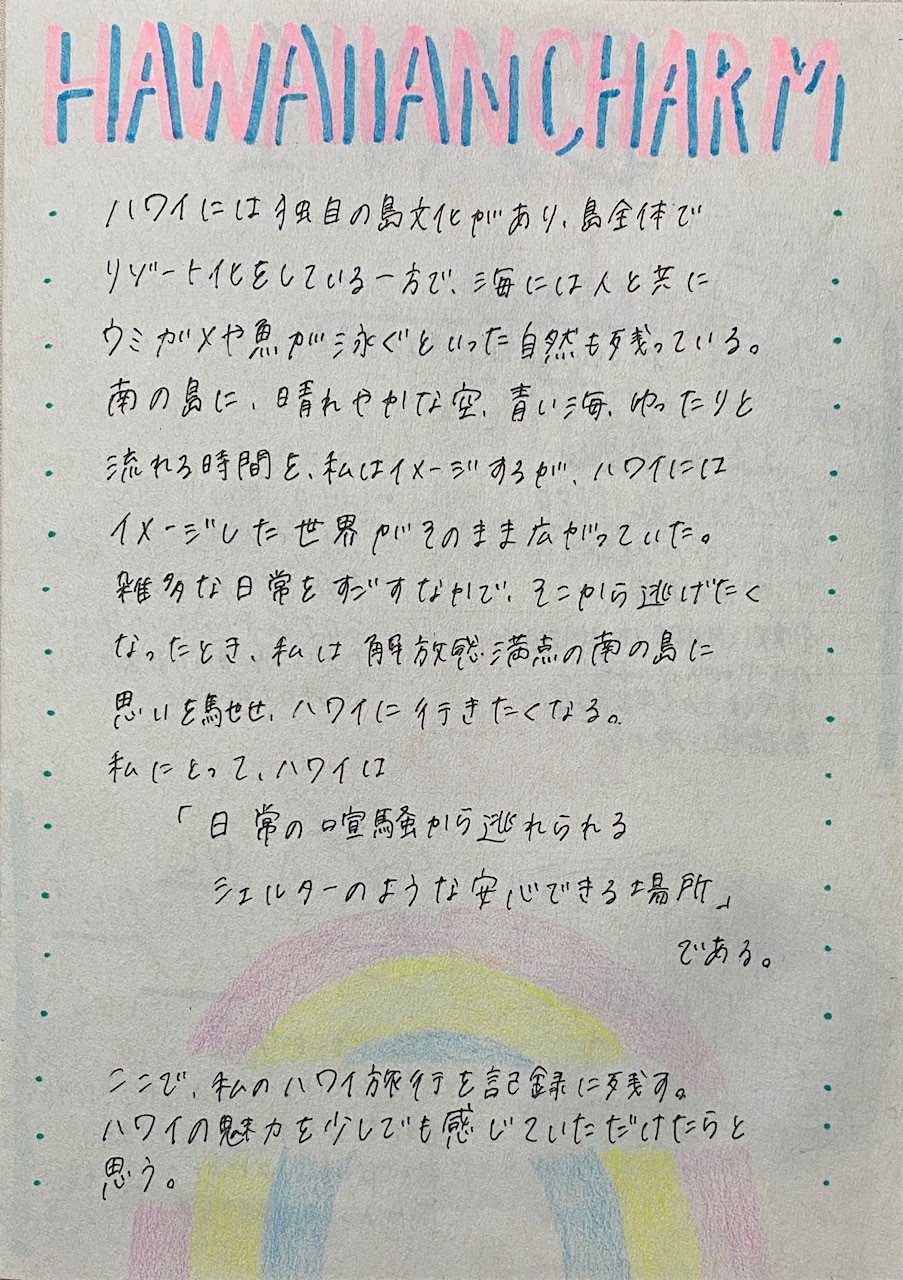 HAWAIIAN CHARM
ハワイには独自の島文化があり、島全体で
リゾート化をしている一方で、海には人と共に
ウミガメや魚が泳ぐといった自然も残っている。
南の島に、晴れやかな空、青い海、ゆったりと
流れる時間を、私はイメージするが、ハワイには
イメージした世界がそのまま広がっていた。
雑多な日常をすごすなかで、そこから逃げたく
なったとき、私は解放感満点の南の島に
思いを馳せ、ハワイに行きたくなる。
私にとって、ハワイは
「日常の喧騒から逃れられる
シェルターのような安心できる場所」
である。
ここで、私のハワイ旅行を記録に残す。
ハワイの魅力を少しでも感じていただけたらと
思う。